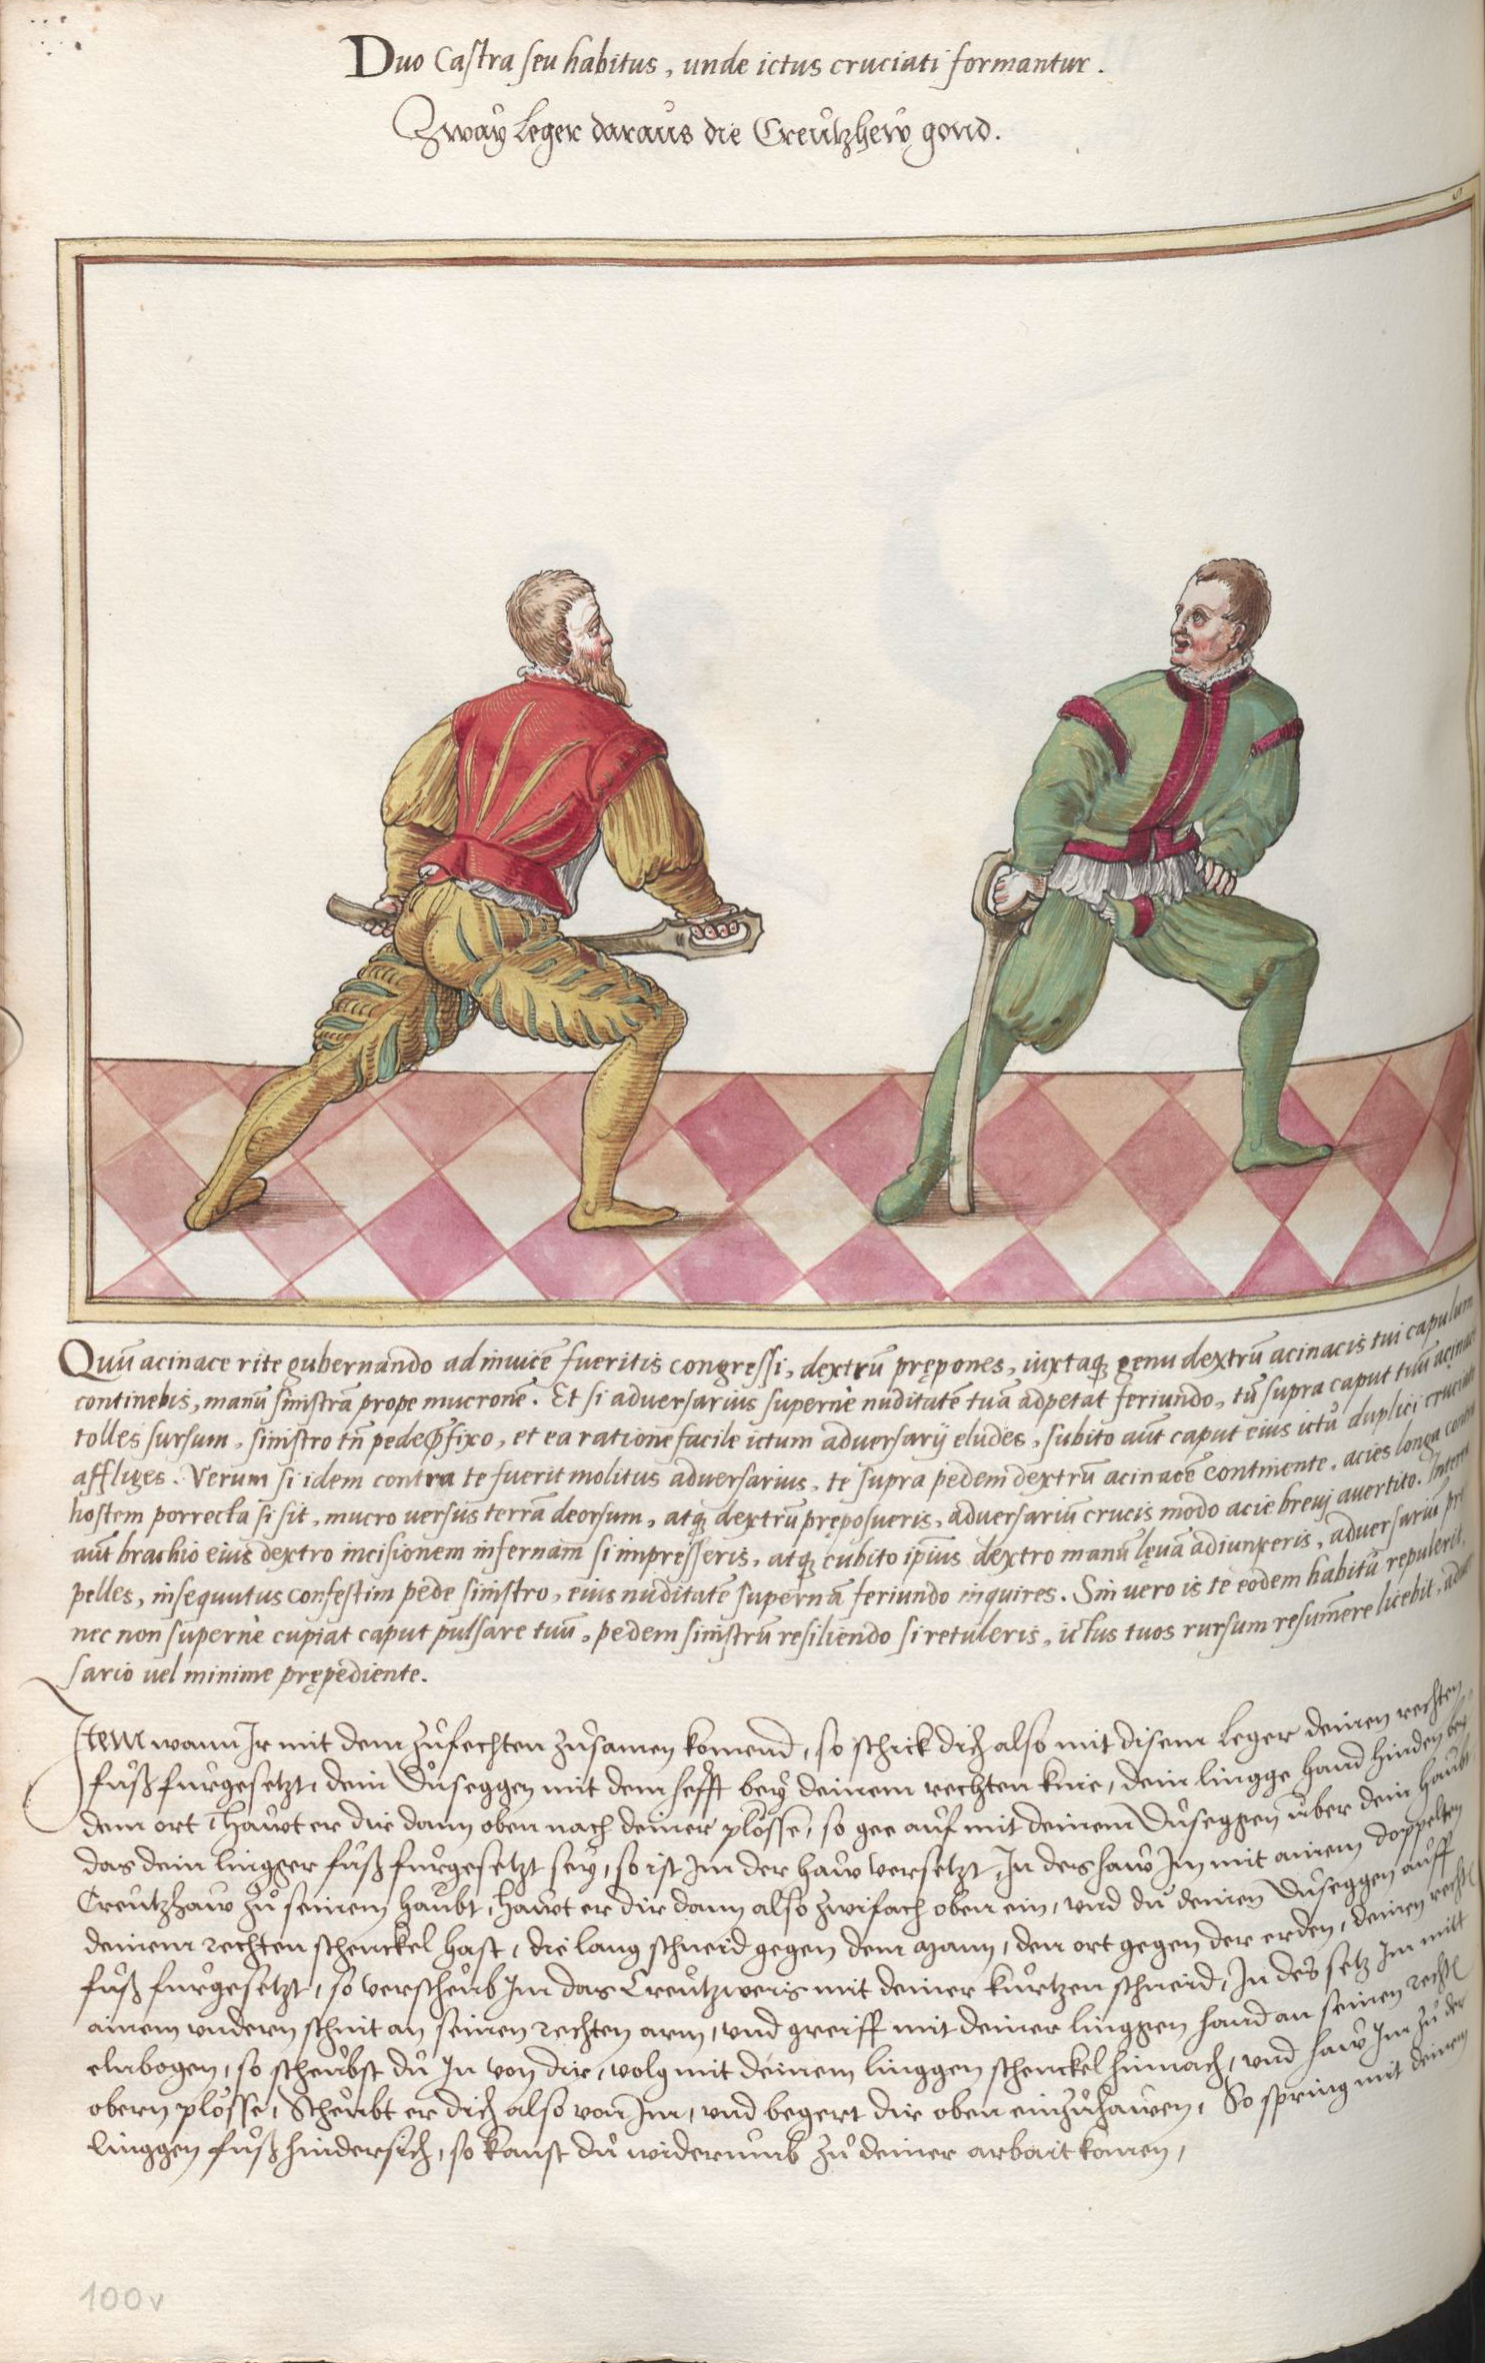 Duo Castra seu habitus, unde ictus cruciati formantur.
Zway Leger daraus die Creützhew gond.
Quū acinace rite gubernando ad inuicē fueritis congressi, dextrū prępones, iuxtaq; genu dextrū acinacis tui capulum
continebis, manū sinistrā prope mucronē. Et si adversarius supernè nuditatē tuā adpetat feriundo, tū supra caput tuū acinace
tolles sursum, sinistro tn̄ pede fixo, et ea ratione facile ictum adversarij eludes, subito aūt caput eius ictū duplici cruciato
affliges. Verum si idem contra te fuerit molitus adversarius, te supra pedem dextrū acinacē continente, acies longa contra
hostem porrecta si sit, mucro versus terrā deorsum, atq; dextrū pręposueris, adversariū crucis modo acie brevj avertito. Interea
aūt brachio eius dextro incisionem infernam si impresseris, atq; cubito ipsius dextro manū lęvā adiunxeris, adversariū pro
pelles, insequutus confestim pede sinistro, eius nuditatē supernā feriundo inquires. Sin vero is te eodem habitū repulerit,
nec non supernè cupiat caput pulsare tuū, pedem sinistrū resiliendo si retuleris, ictus tuos rursum resumere licebit, adver
sario vel minime prępediente.
Item wann Ir mit dem zůfechten zůsamen komend, so schick dich also mit disem Leger deinen rechten
fůß fürgesetzt, dein Duseggen mit dem hefft bey deinem rechten knie, dein lingge hand hinden bey
dem ort, Hawt er dir dann oben nach deiner plösse, so gee auf mit deinem Duseggen über dein haubt
das dein lingger fůß fürgesetzt sey, so ist Im der haw versetzt, In des haw Im mit ainem doppelten
Creützhaw zů seinem haubt, hawt er dir dann also zwifach oben ein, und du deinen Duseggen auff
deinem rechten schenckel hast, die lang schneid gegen dem Mann, den ort gegen der erden, deinen rechten
fůß fürgesetzt, so verscheub Im das Creützweis mit deiner kurtzen schneid, In des setz Im mitt
ainem undern schnit an seinen rechten arm, und greiff mit deiner linggen hand an seinen rechten
elnbogen, so scheubst du In von dir, volg mit deinem linggen schenckel hinnach, und haw Im zů der
obern plösse, Scheubt er dich also von Im, und begert dir oben einzůhawen, So spring mit deinem
linggen fůß hindersich, so kanst du widerumb zů deiner arbait komen,
100v